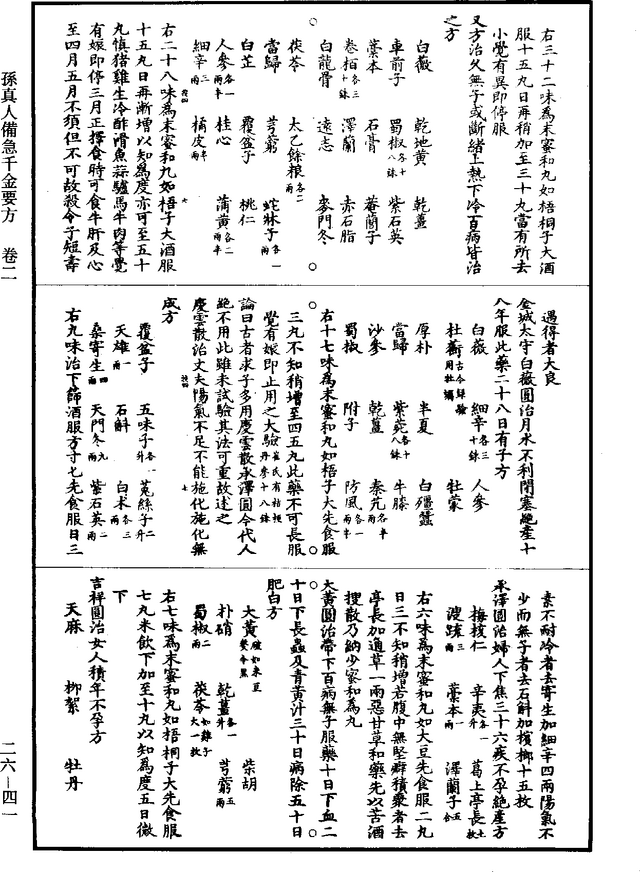 孫真人備急千金要方　卷二
右三十二味為末蜜和丸如梧桐子大酒
服十五丸日再稍加至三十丸當有所去
小覺有異即停服
又方治久無子或斷緒上熱下冷百病皆治
之方
白薇　乾地黃　乾薑
車前子　蜀椒各十八銖　紫石英
藁本　石膏　菴䕡子
卷柏各三十銖　澤蘭　赤石脂
白龍骨　遠志　麥門冬
茯苓　太乙餘糧各二兩
當歸　芎藭　蛇牀子各一兩
白芷　覆盆子　桃仁
人參各一兩半　桂心　蒲黃各二兩半
細辛三兩　橘皮半兩
右二十八味為末蜜和丸如梧子大酒服
十五丸日再漸增以知為度亦可至五十
丸慎猪雞生冷酢滑魚蒜驢馬牛肉等覺
有娠即停三月正擇食時可食牛肝及心
至四月五月不須但不可故殺令子短壽
遇得者大良
金城太守白薇圓治月水不利閉塞絶產十
八年服此藥二十八日有子方
白薇　細辛各三十銖　人參
杜蘅古今錄驗用牡蠣　牡蒙
厚朴　半夏　白殭蠶
當歸　紫菀各十八銖　牛膝
沙參　乾薑　秦艽各半兩
蜀椒　附子　防風各一兩半
右十七味為末蜜和丸如梧子大先食服
三丸不知稍增至四五丸此藥不可長服
覺有娠即止用之大驗崔氏有桔梗丹參十八銖
論曰古者求子多用慶雲散承澤圓今代人
絶不用此雖未試驗其法可重故述之
慶雲散治丈夫陽氣不足不能施化施化無
成方
覆盆子　五味子各一升　菟絲子二升
天雄一兩　石斛　白朮各三兩
桑寄生四兩　天門冬九兩　紫石英二兩
右九味治下篩酒服方寸匕先食服日三
素不耐冷者去寄生加細辛四兩陽氣不
少而無子者去石斛加檳榔十五枚
承澤圓治婦人下焦三十六疾不孕絶產方
梅核仁　辛夷各一升　葛上亭長七枚
溲疏二兩　藁本一兩　澤蘭子五合
右六味為末蜜和丸如大豆先食服二丸
日三不知稍增若腹中無堅癖積聚者去
亭長加通草一兩惡甘草和藥先以苦酒
搜散乃納少蜜和為丸
大黃圓治帶下百病無子服藥十日下血二
十日下長蟲及青黃汁三十日病除五十日
肥白方
大黃破如米豆熬令黑　柴胡
朴硝　乾薑各一升　芎藭五兩
蜀椒二兩　茯苓如雞子大一枚
右七味為末蜜和丸如梧桐子大先食服
七丸米飲下加至十丸以知為度五日微
下
吉祥圓治女人積年不孕方
天麻　柳絮　牡丹
二六—四一